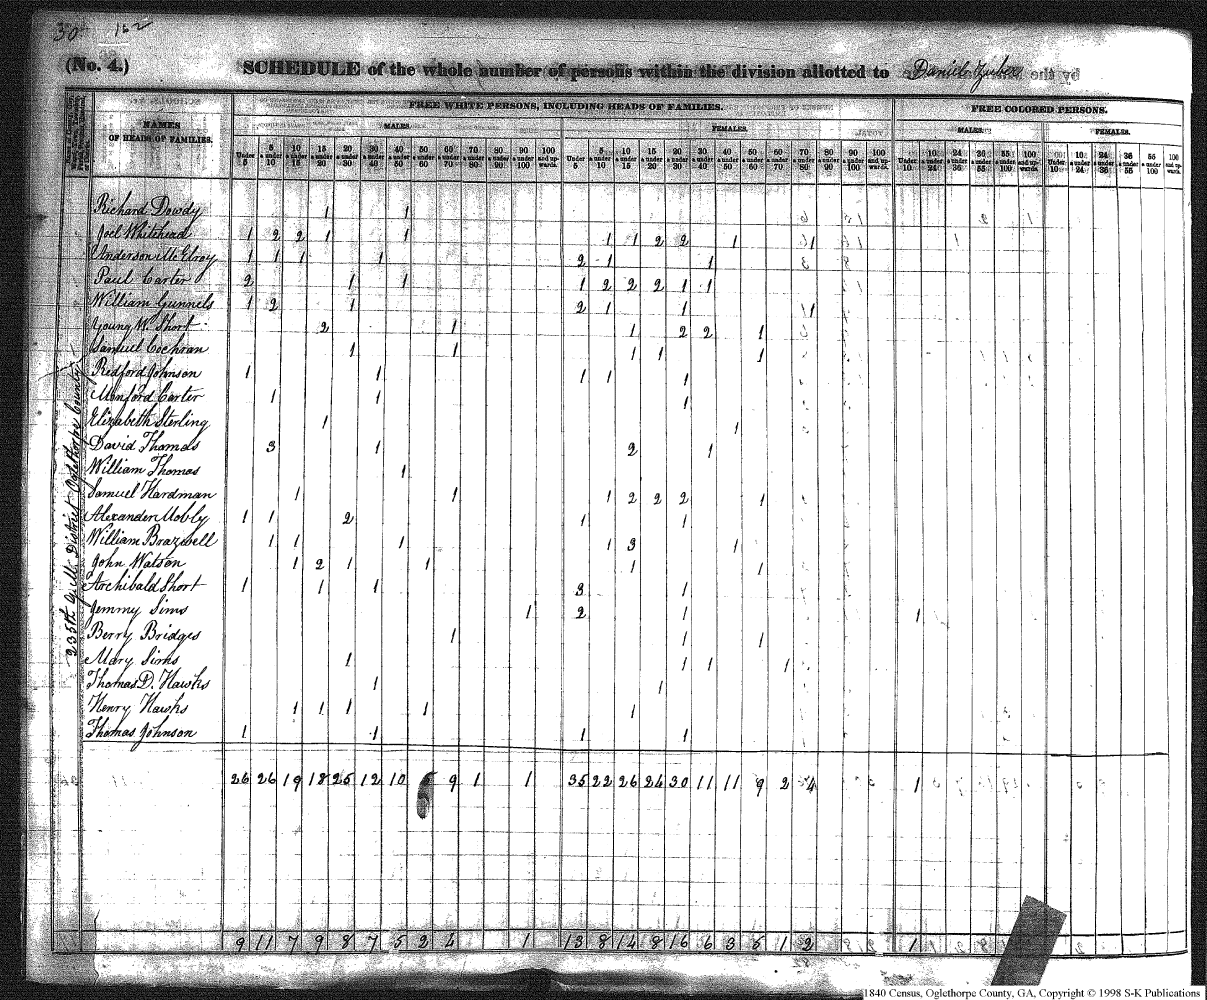 30 162
(No. 4.) SCHEDULE of the whole number of persons within the division allotted to Daniel Zuber by the
FREE WHITE PERSONS, INCLUDING HEADS OF FAMILIES. FREE COLORED PERSONS.
NAMES OF HEADS OF FAMILIES.
MALES. FEMALES. MALES. FEMALES.
Under 5 5 & under 10 10 & under 15 15 & under 20 20 & under 30 30 & under 40 40 & under 50 50 & under 60 60 & under 70 70 & under 80 80 & under 90 90 & under 100 100 and upwards. Under 5 5 & under 10 10 & under 15 15 & under 20 20 & under 30 30 & under 40 40 & under 50 50 & under 60 60 & under 70 70 & under 80 80 & under 90 90 & under 100 100 and upwards. Under 10 10 & under 24 24 & under 36 36 & under 55 55 & under 100 100 and upwards. Under 10 10 & under 24 24 & under 36 36 & under 55 55 & under 100 100 and upwards.
235th District Oglethorpe County
Richard Dowdy 1 1
Joel Whitehead 1 2 2 1 1 1 1 2 2 1 1
Anderson McElroy 1 1 1 1 2 1 1
Paul Carter 2 1 1 1 2 2 2 1 1
William Gunnels 1 2 1 2 1 1 1
Young W. Short 2 1 1 2 2 1
Samuel Cochran 1 1 1 1 1
Redford Johnson 1 1 1 1 1
Monford Carter 1 1 1
Elizabeth Sterling 1 1
David Thomas 3 1 2 1
William Thomas 1
Samuel Hardman 1 1 1 2 2 2 1
Alexander Mobly 1 1 2 1 1
William Brazwell 1 1 1 1 3 1
John Watson 1 2 1 1 1 1
Archibald Short 1 1 1 3 1
Jemmy Sims 1 2 1 1
Berry Bridges 1 1 1
Mary Sims 1 1 1 1
Thomas D. Hawks 1 1
Henry Hawks 1 1 1 1 1
Thomas Johnson 1 1 1 1
26 26 19 18 25 12 10 9 1 1 35 22 26 24 30 11 11 9 2 4 1
9 11 7 9 8 7 5 2 4 1 13 8 14 8 16 6 3 5 1 2 1
1840 Census, Oglethorpe County, GA, Copyright © 1998 S-K Publications